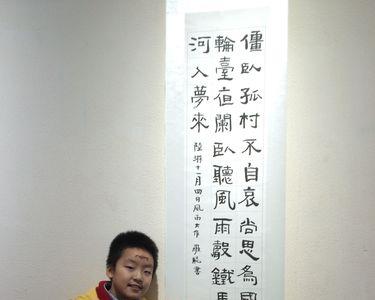 僵臥孤村不自哀尚思為國
輪臺夜闌臥聽風雨鐵馬
河入夢來
陸游十一月四日風雨大作 書